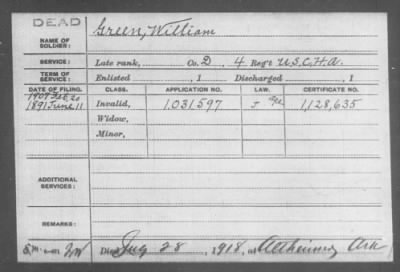 DEAD
NAME OF SOLDIER: Green, William
SERVICE: Late rank, Co. D, 4 Reg't U.S.C.H.A.
TERM OF SERVICE: Enlisted , 1 Discharged , 1
DATE OF FILING. CLASS. APPLICATION NO. LAW. CERTIFICATE NO.
1907 Feb 20
1891 June 11 Invalid, 1,031,597 1,128,635
Widow,
Minor,
ADDITIONAL SERVICES:
REMARKS:
Died 28, 1918, at Ark